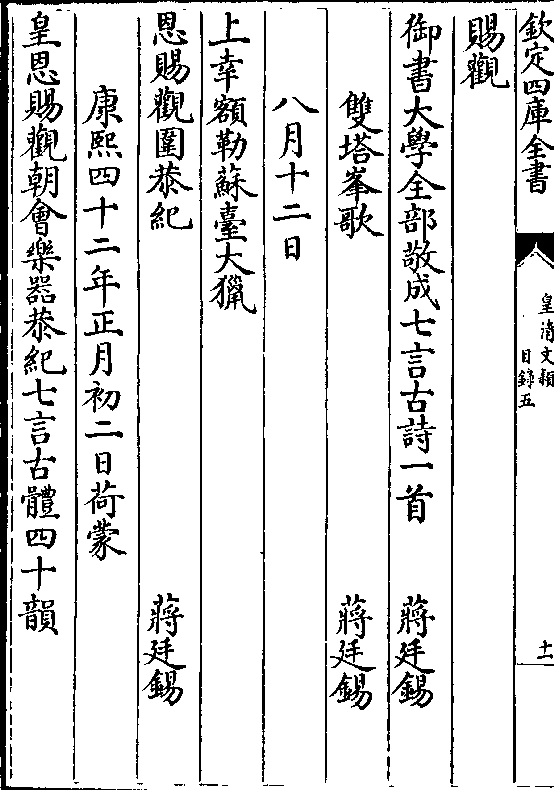 欽定四庫全書
皇清文穎
目錄五
十一
賜觀
御書大學全部敬成七言古詩一首 蔣廷錫
雙塔峯歌 蔣廷錫
八月十二日
上幸額勒蘇臺大獵
恩賜觀圍恭紀 蔣廷錫
康熙四十二年正月初二日荷蒙
皇恩賜觀朝會樂器恭紀七言古體四十韻